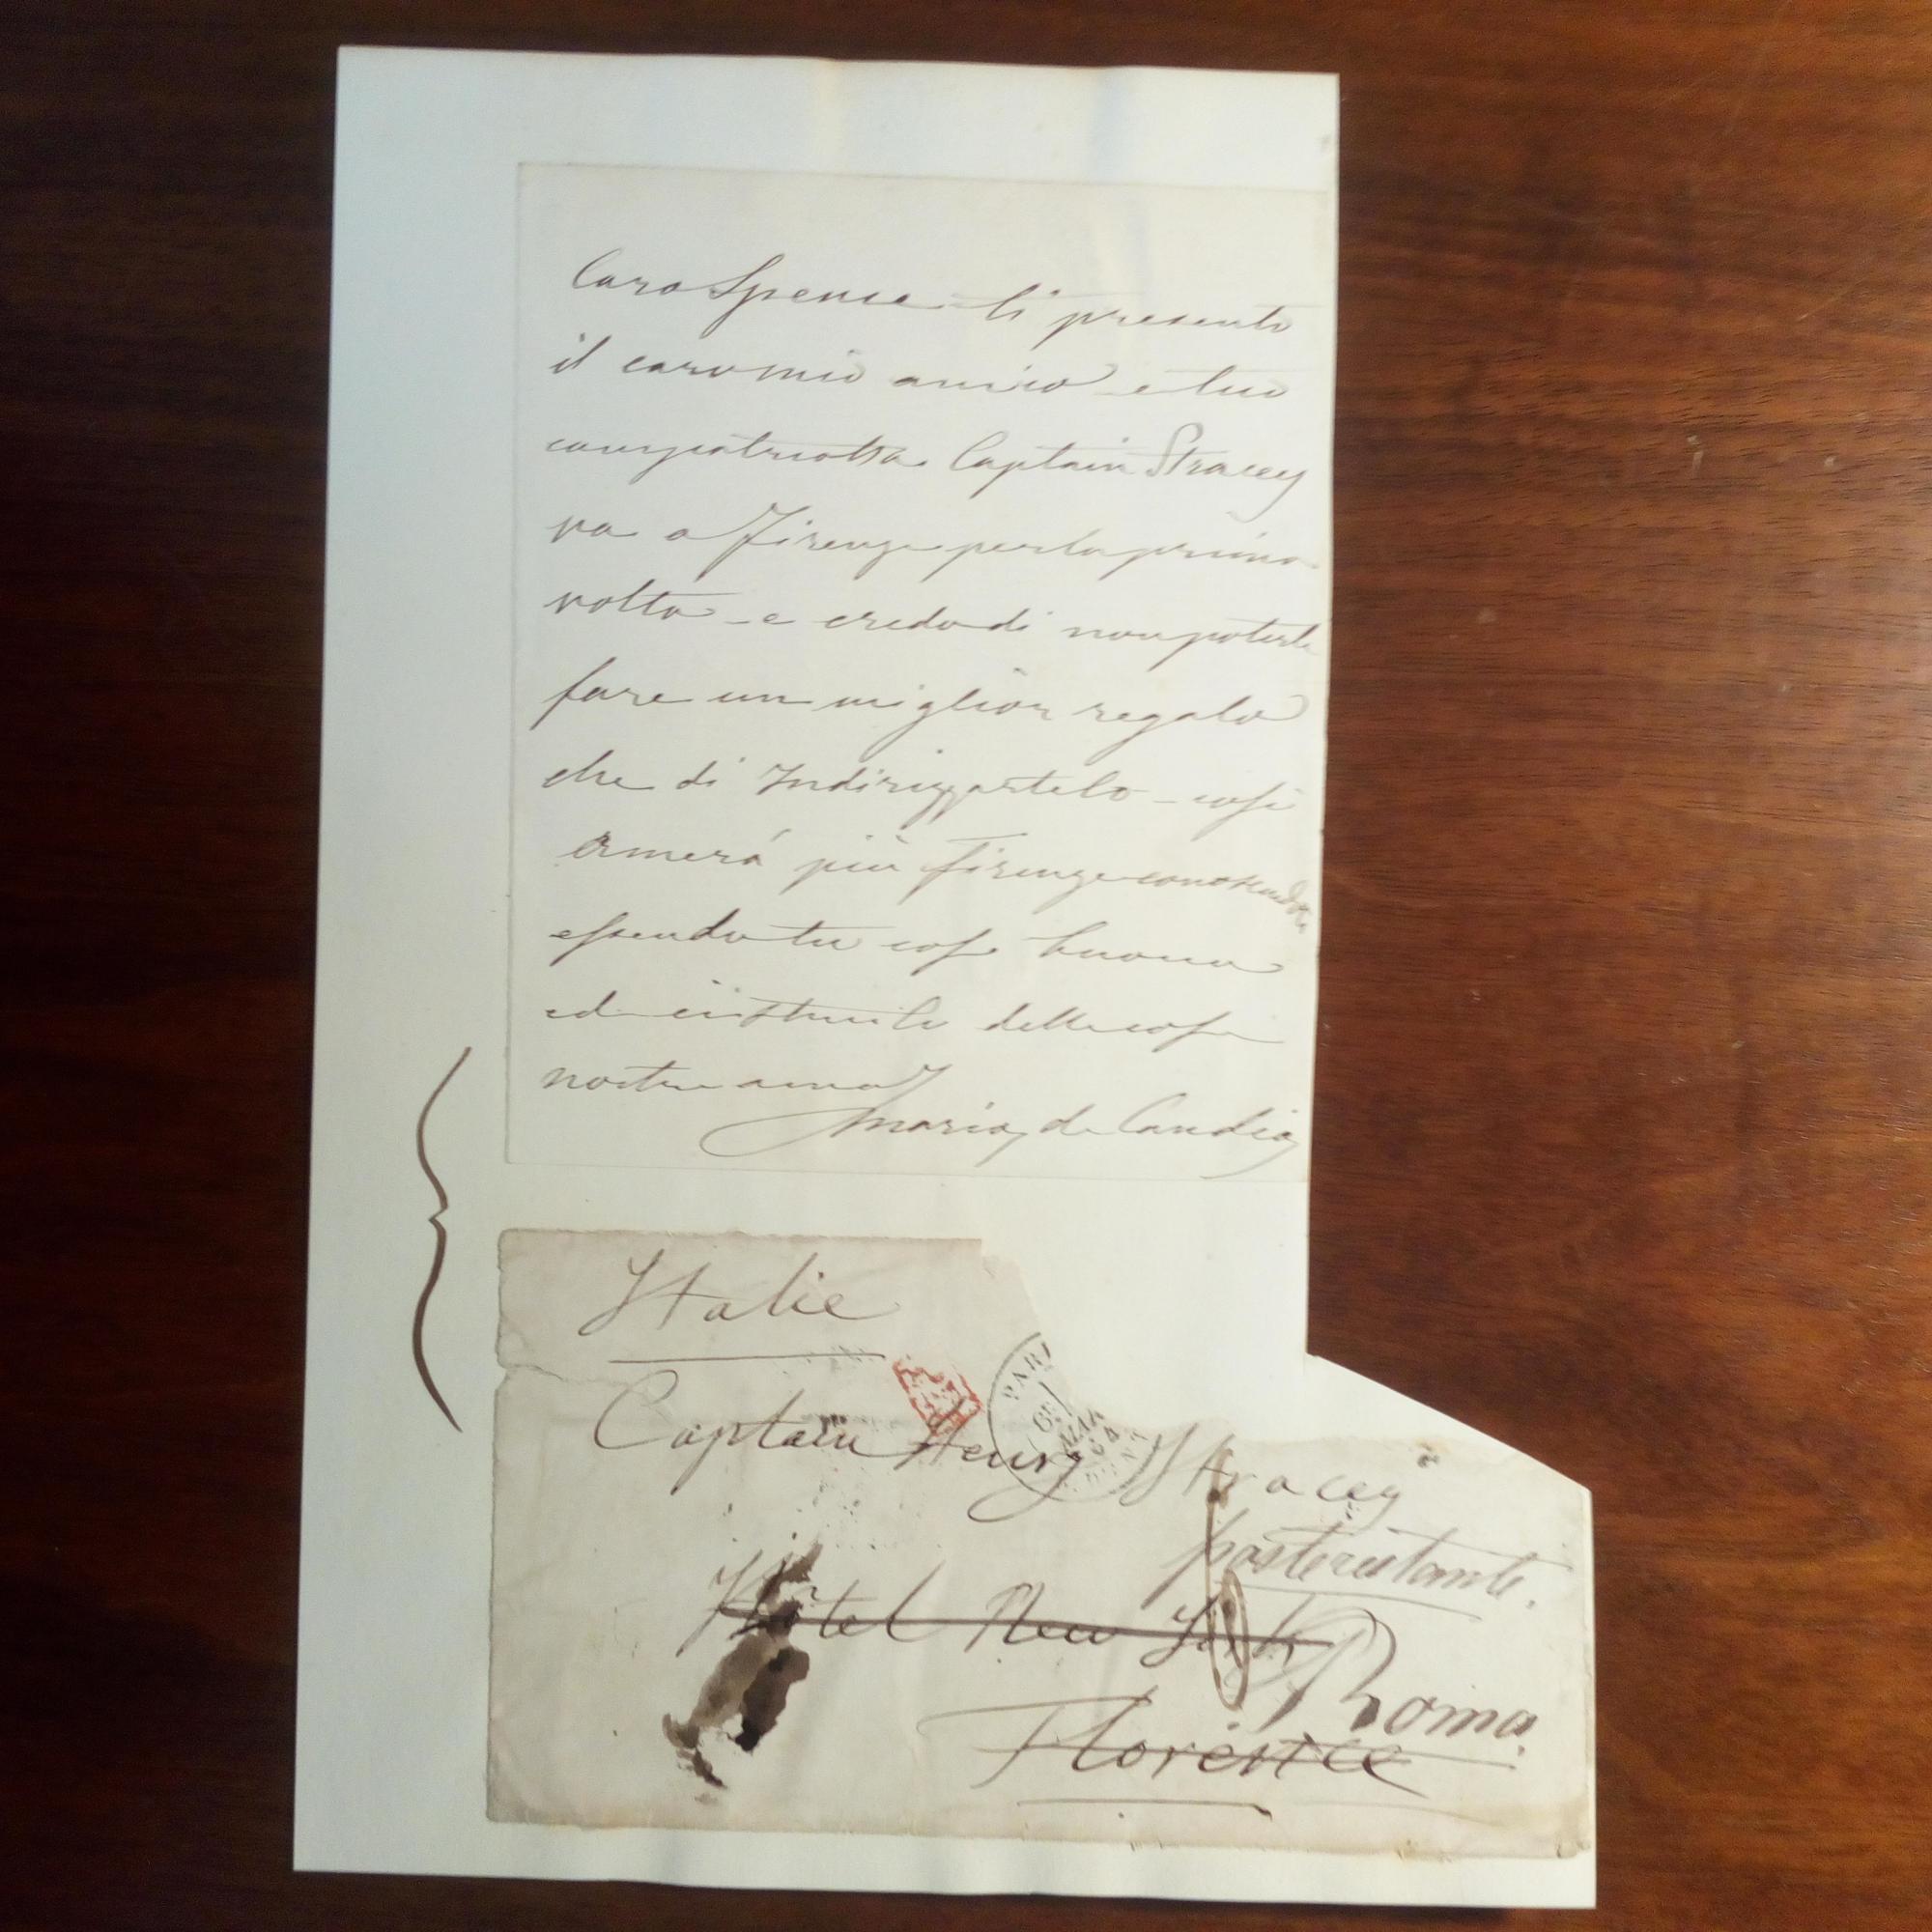 Caro Spence ti presento
il caro mio amico e tuo
compatriotta Captain Stracey
va a Firenze per la prima
volta - e credo di non poterti
fare un miglior regalo
che di Indirizzartelo - cosi
amerá più Firenze conoscendoti
essendo tu cosi buono
ed istruito delle cose
nostre
Mario de Candia
Italie
PARI
Captain Henry Stracey
poste restante.
Hôtel New York
Roma.
Florence